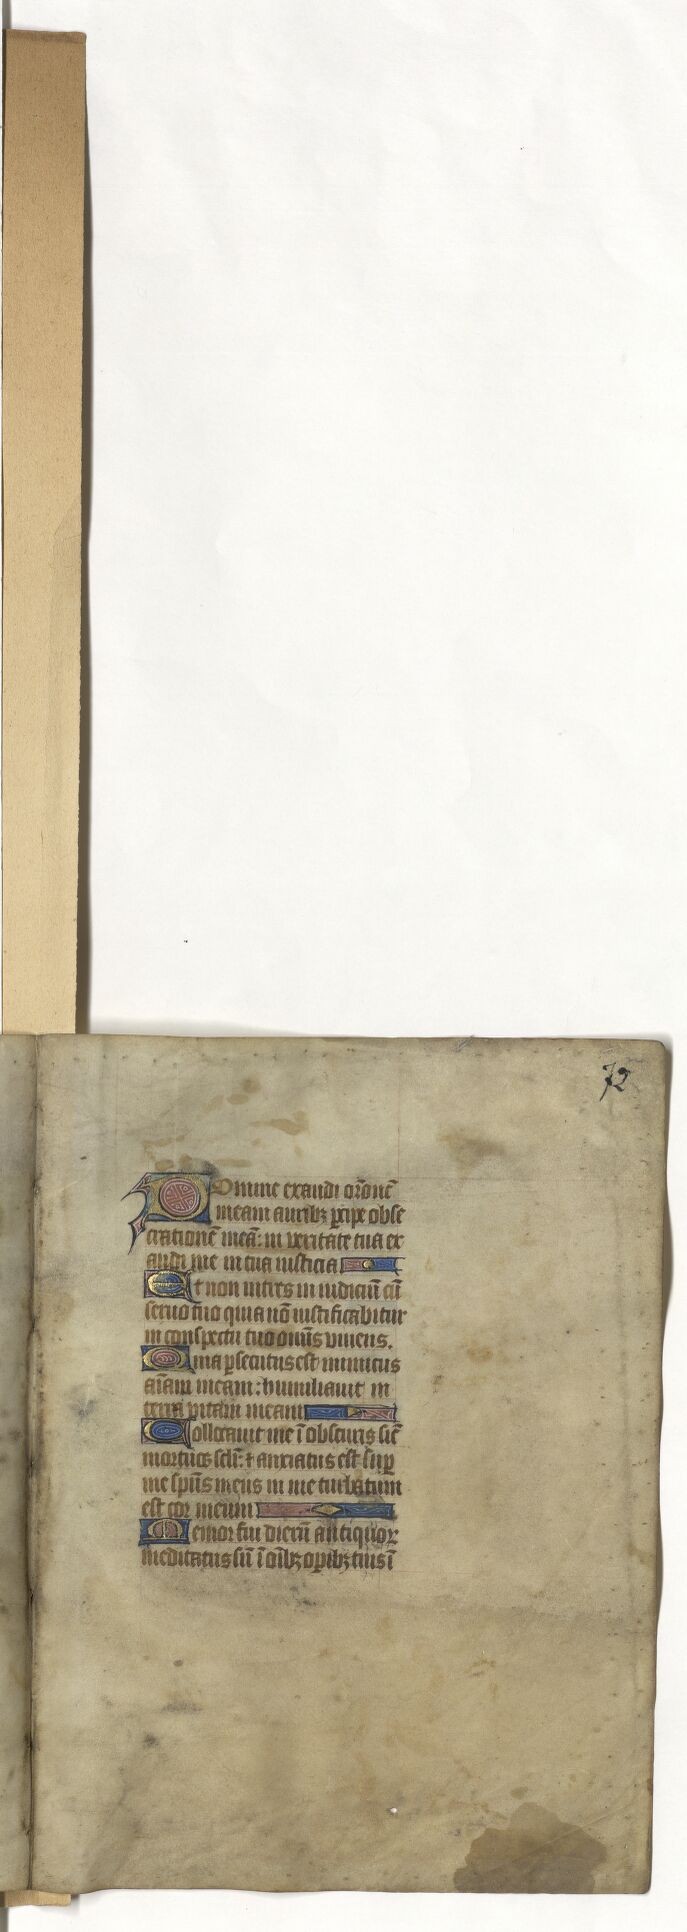 72
Domine exaudi or̄onē
meam auribꝫ ꝑcipe obse
crationē meā: in veritate tua ex
audi me in tua iusticia
Et non intres in iudiciū cū
seruo tuo quia nō iustificabitur
in conspectu tuo om̄īs viuens.
Quia ꝑsecutus est inimicus
aīam meam: humiliauit in
terra vitam meam
Collocauit me ī obscuris sic̄
mortuos sc̄li: ⁊ anxiatus est suꝑ
me spūs meus in me turbatum
est cor meum
Memor fui dierū antiquoꝝ
meditatus sū ī oībꝫ oꝑibꝫ tuis ī